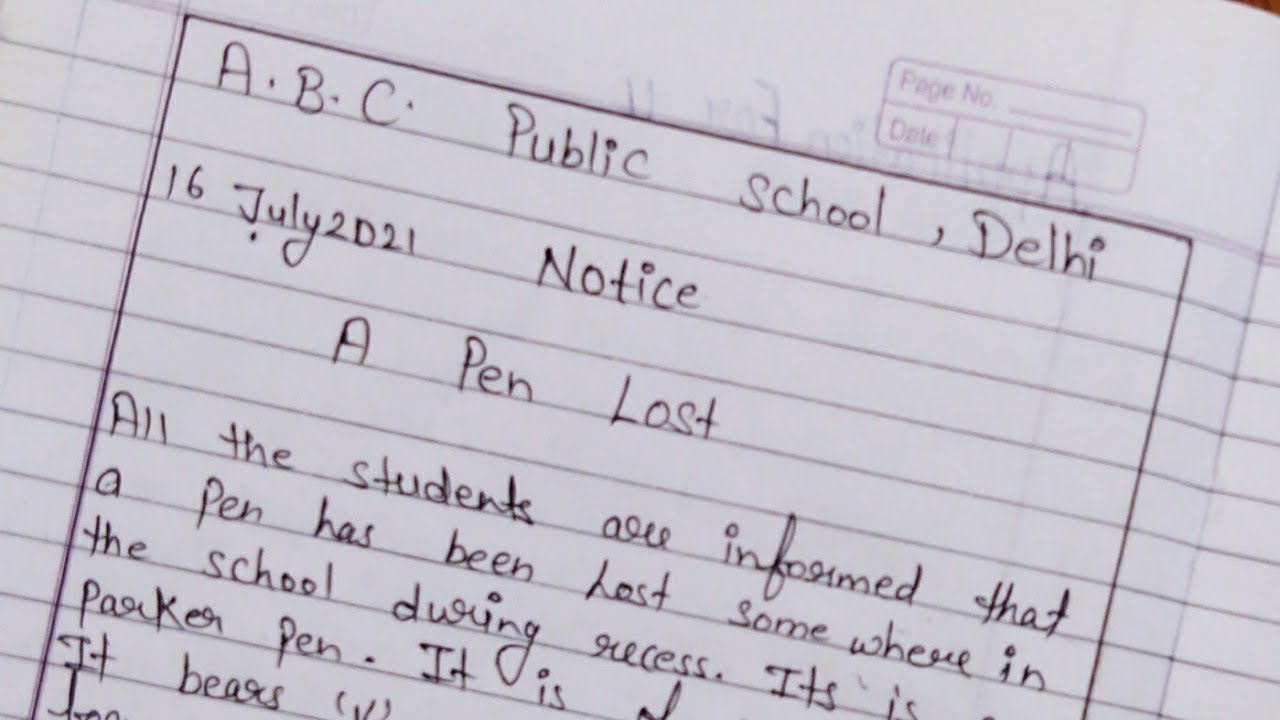 Page No.
Date
A.B.C. Public School, Delhi
16 July 2021
Notice
A Pen Lost
All the students are informed that
a Pen has been Lost some where in
the school during recess. Its is
Parker Pen. It is
It bears